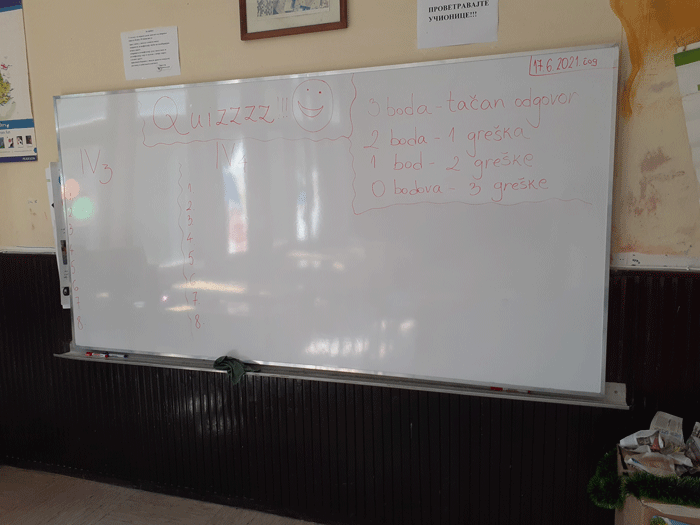 ПРОВЕТРАВАЈТЕ
УЧИОНИЦЕ!!!
17.6.2021.
Quizzzz!!
3 boda - tačan odgovor
2 boda - 1 greška
1 bod - 2 greške
0 bodova - 3 greške
IV3
IV
3
7
8.
1
2
3
4
5
6
7
8